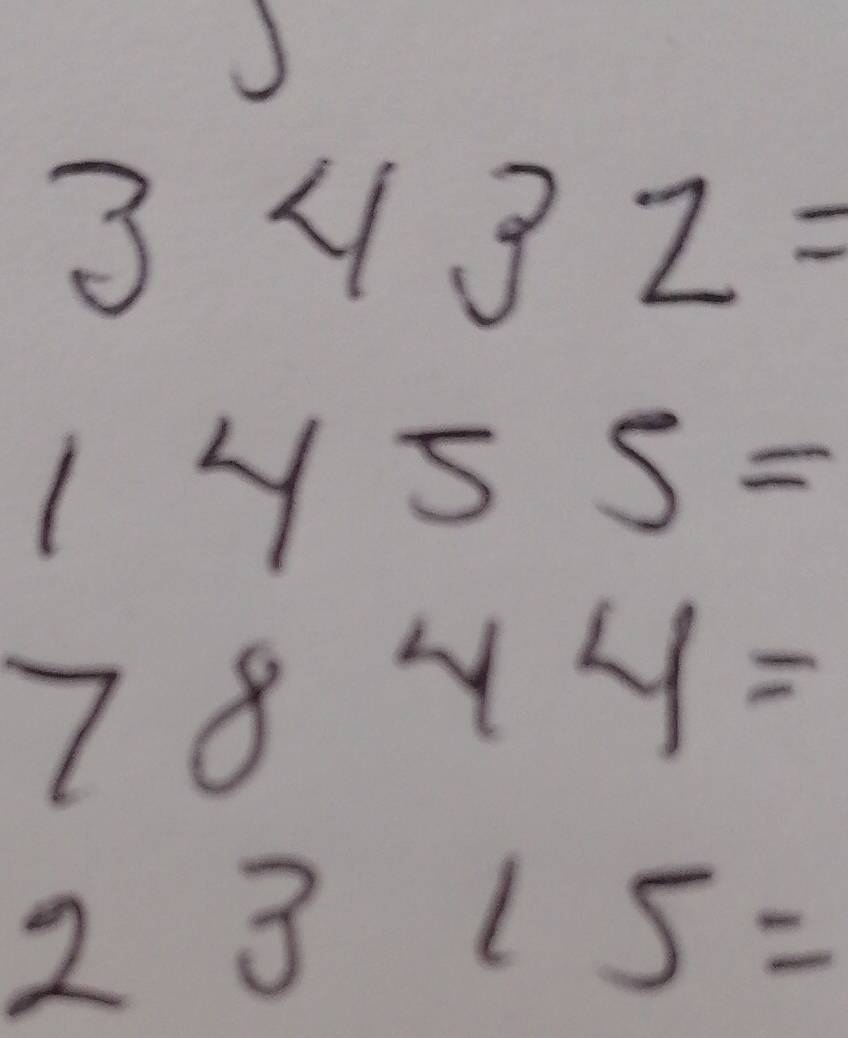 3 4 3 2 =
1 4 5 5 =
7 8 4 4 =
2 3 1 5 =